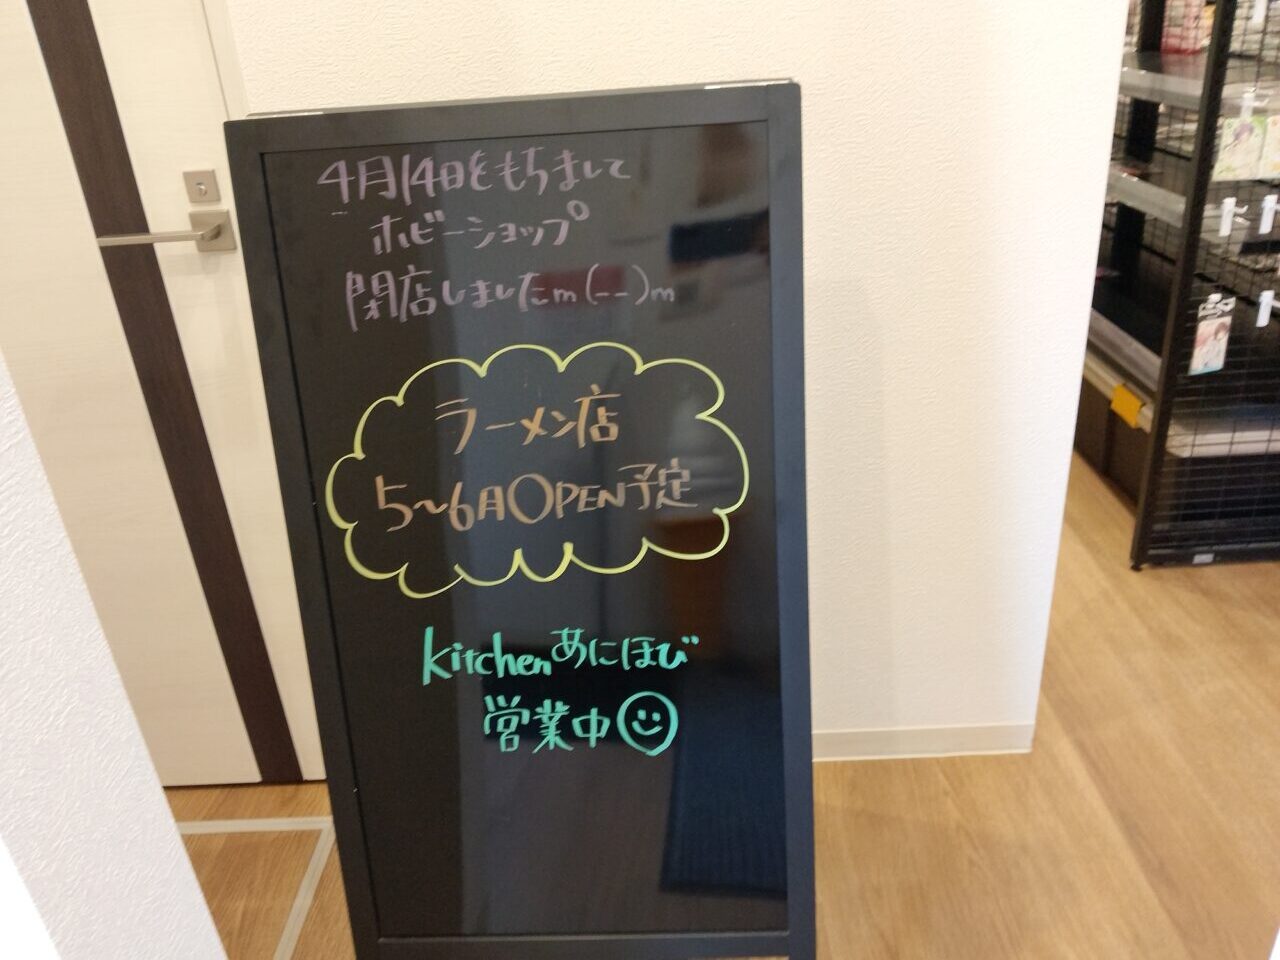 4月14日をもちまして
ホビーショップ
閉店しましたm(--)m
ラーメン店
5~6月OPEN予定
kitchenあにほび
営業中